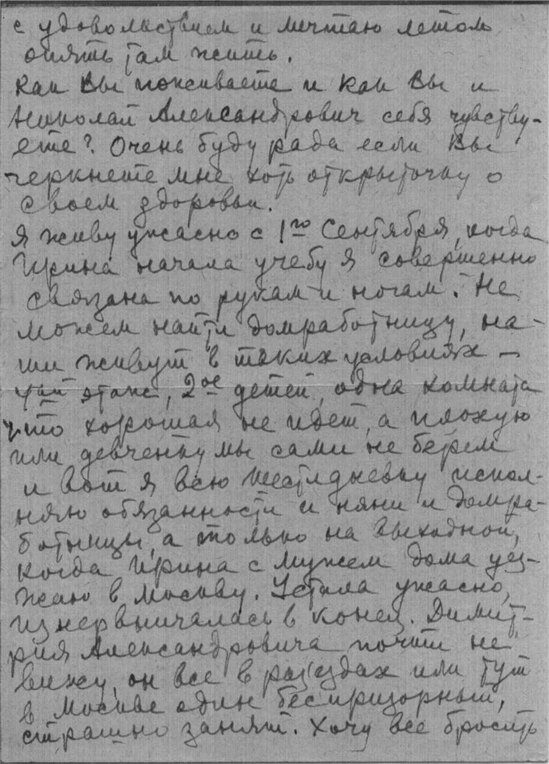 с удовольствием и мечтаю летом
опять там жить.
Как Вы поживаете и как Вы и
Николай Александрович себя чувству-
ете? Очень буду рада если Вы
черкнете мне хоть открыточку о
своем здоровьи.
Я живу ужасно с 1го Сентября, когда
Ирина начала учебу я совершенно
связана по рукам и ногам. Не
можем найти домработницу, на-
ши живут в таких условиях –
этаж, 2ое детей, одна комната
что хорошая не идет, а плохую
или девченку мы сами не берем
и вот я всю шестидневку испол-
няю обязанности и няни и домра-
ботницы, а только на выходной,
когда Ирина с мужем дома уез-
жаю в Москву. Устала ужасно,
изнервничалась в конец. Димит-
рия Александровича почти не
вижу, он все в раз'ездах или тут
в Москве один беспризорный,
страшно занят. Хочу все бросить